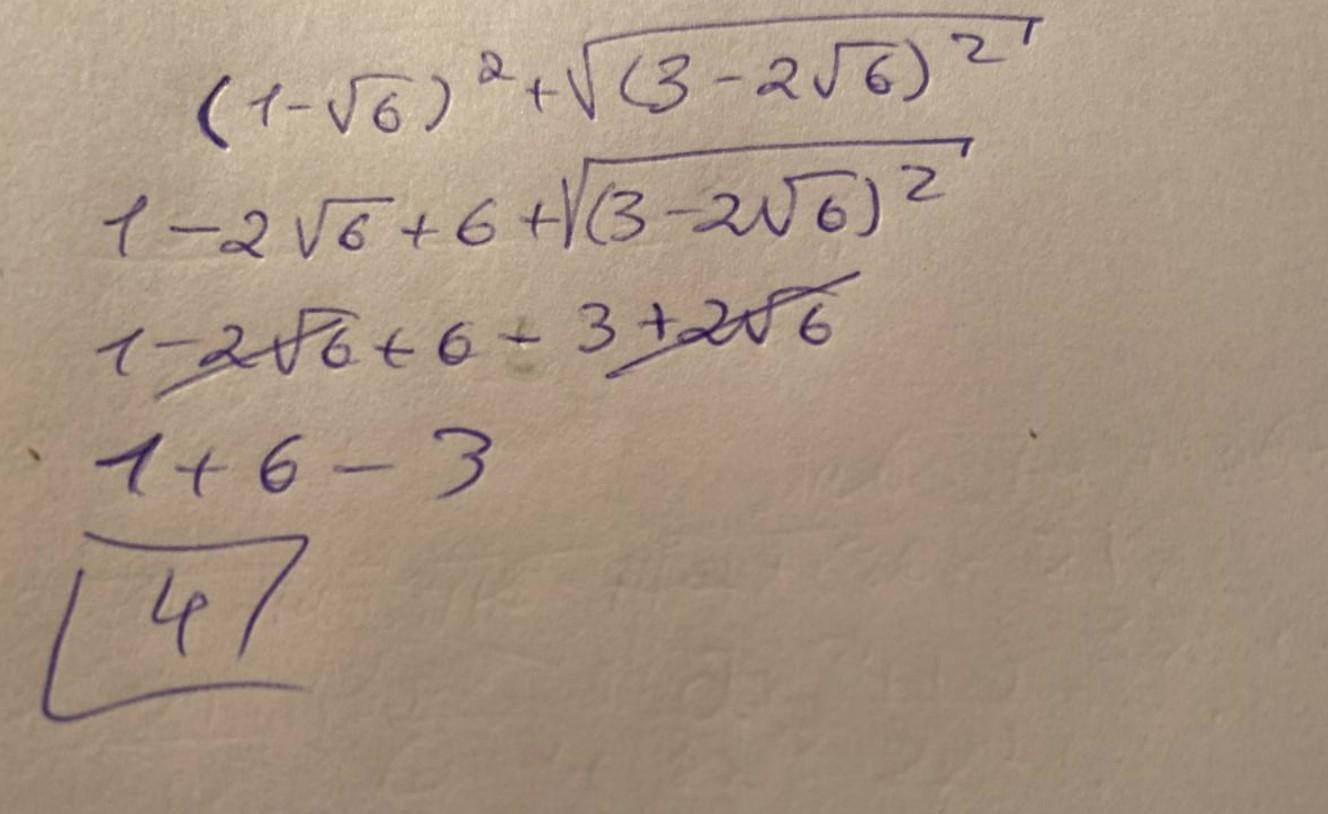 (1-√6)² + √(3-2√6)²
1-2√6+6+√(3-2√6)²
1-2√6+6-3+2√6
1+6-3
4